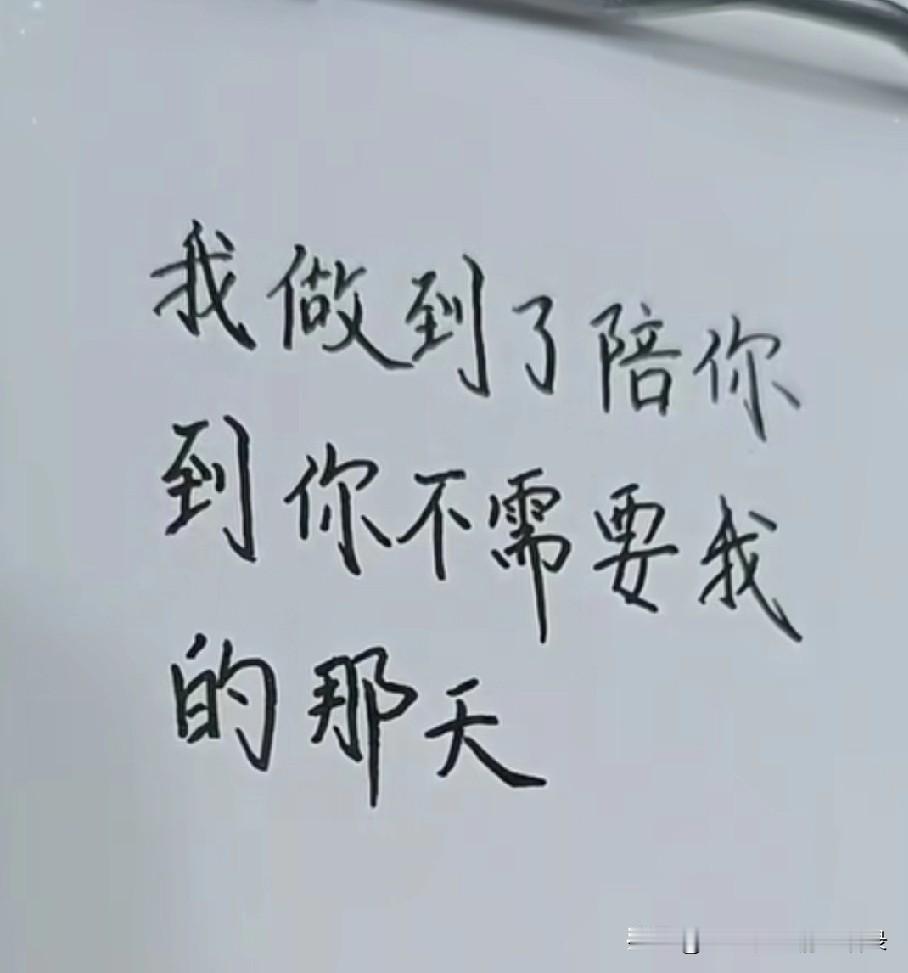 我做到了陪你
到你不需要我
的那天